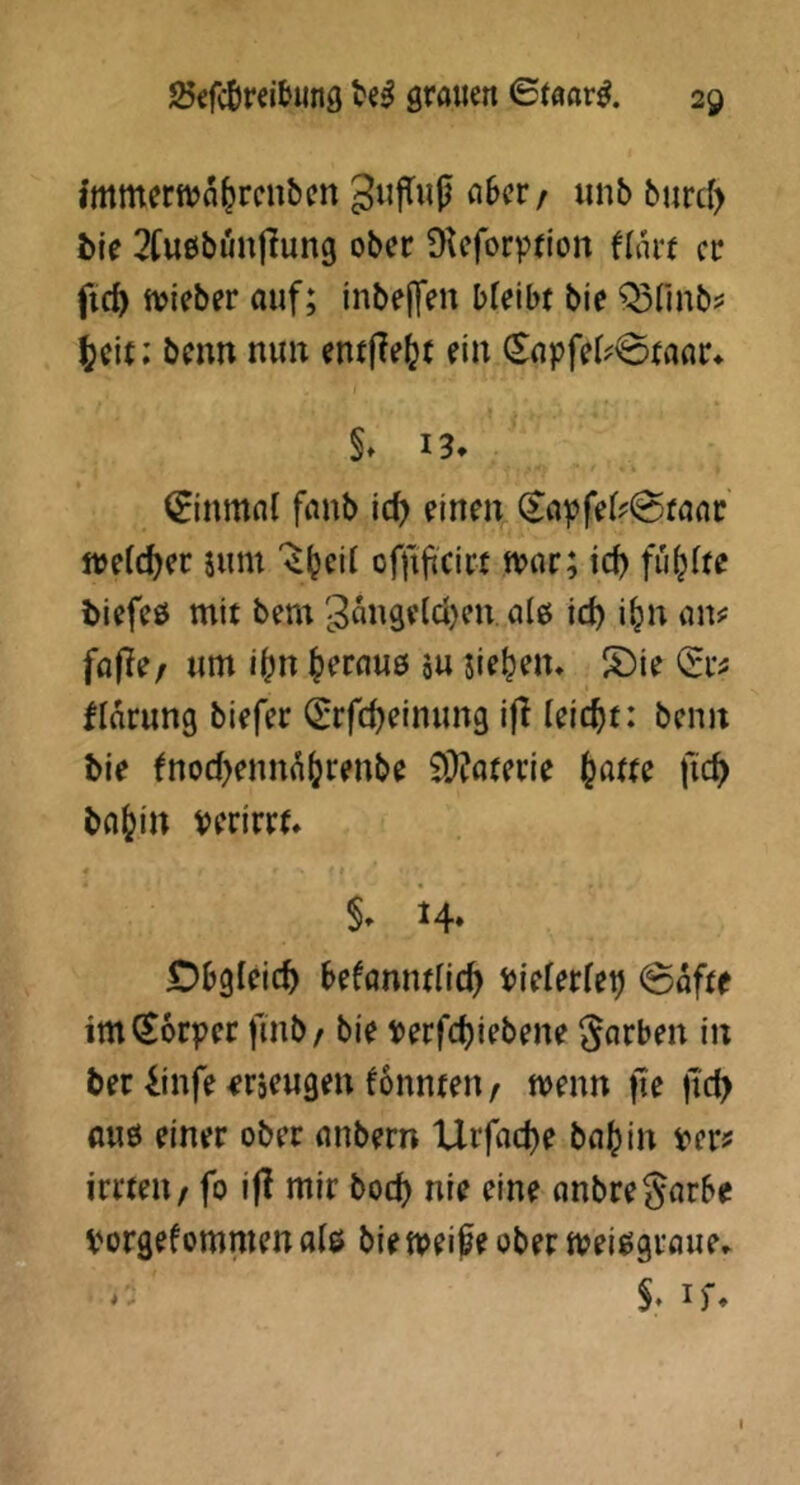 Beschreibung des grauen Staars. 29
immerwährenden Zufluß aber, und durch
die Ausdünstung oder Resorption klärt er
sich wieder auf; indessen bleibt die Blind-
heit: denn nun entsteht ein Capsel-Staar.
§. 13.
Einmal fand ich einen Capsel-Staar
welcher zum Theil ossificirt war; ich fühlte
dieses mit dem Zängelchen als ich ihn an-
faste, um ihn heraus zu ziehen. Die Er-
klärung dieser Erscheinung ist leicht: denn
die knochennährende Materie hatte sich
dahin verirrt.
§. 14.
Obgleich bekanntlich vielerley Säfte
im Cörper sind, die verschiedene Farben in
der Linse erzeugen könnten, wenn sie sich
aus einer oder andern Ursache dahin ver-
irrten, so ist mir doch nie eine andre Farbe
vorgekommen als die weiße oder weisgraue.
§. 15.